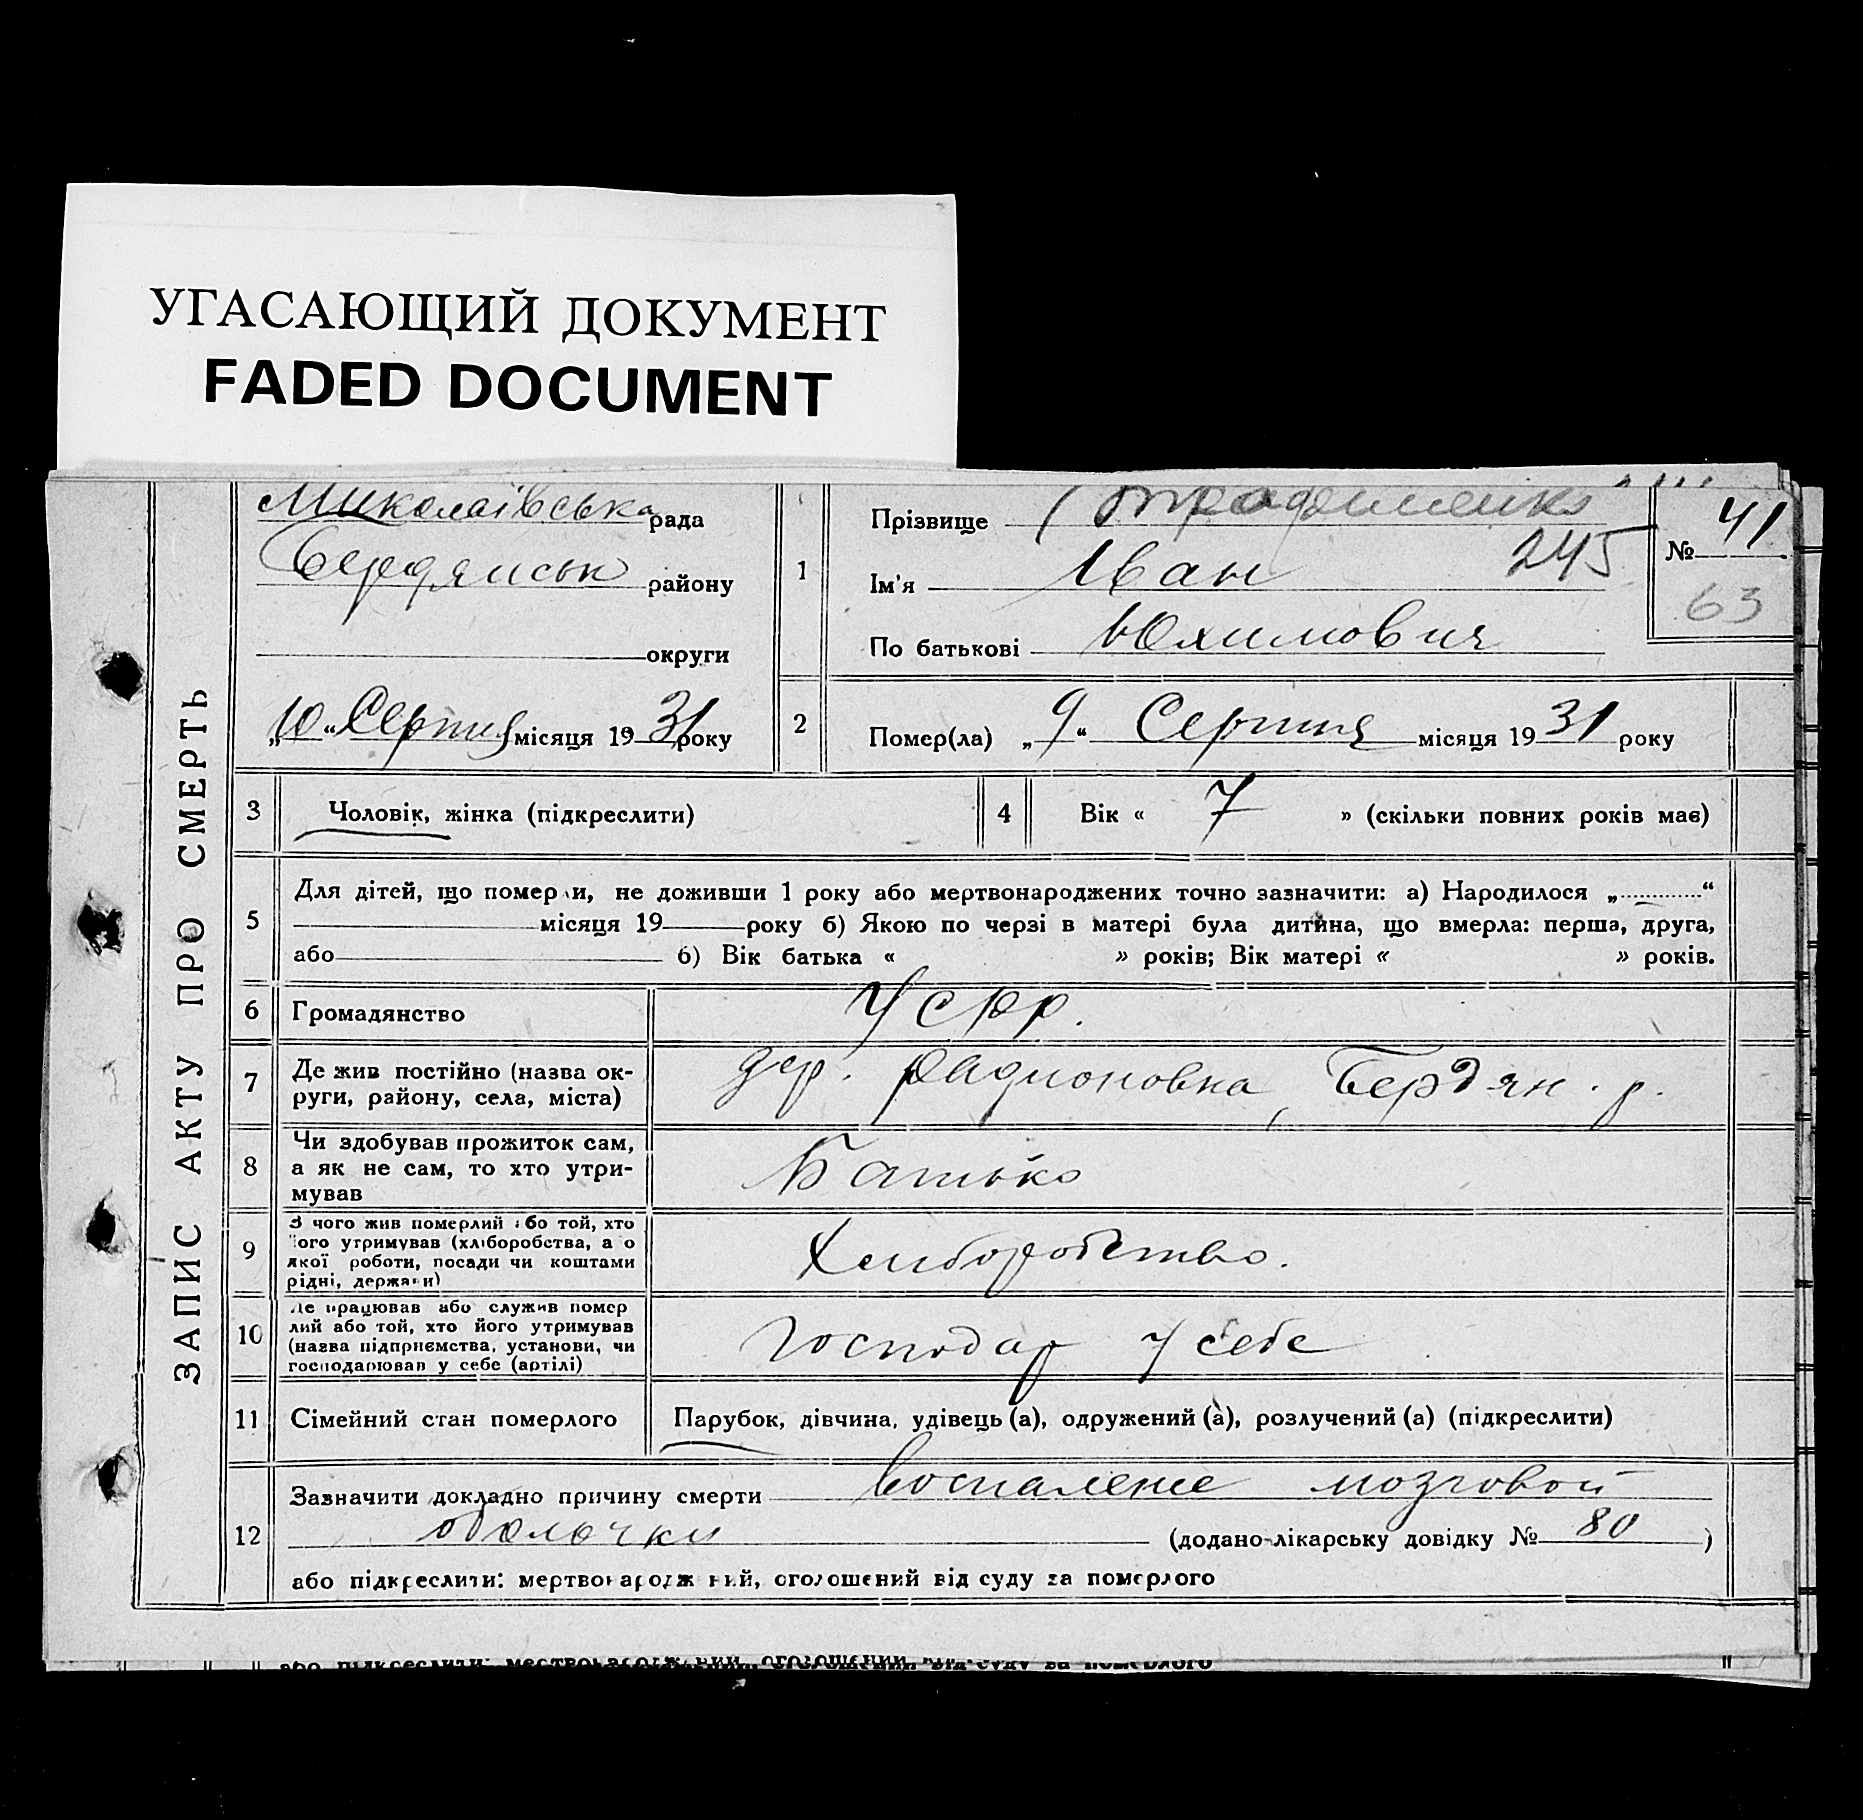 УГАСАЮЩИЙ ДОКУМЕНТ
FADED DOCUMENT
ЗАПИС АКТУ ПРО СМЕРТЬ
Миколаївська рада
Бердянськ району
округи
„10“ Серпня місяця 1931 року
1
Прізвище
Ім'я Іван
245
По батькові Юхимович
№ 41
63
2
Помер(ла) „9“ Серпня місяця 1931 року
3
Чоловік, жінка (підкреслити)
4
Вік « 7 » (скільки повних років має)
5
Для дітей, що померли, не доживши 1 року або мертвонароджених точно зазначити: а) Народилося „ “
місяця 19 року б) Якою по черзі в матері була дитина, що вмерла: перша, друга,
або б) Вік батька « » років; Вік матері « » років.
6
Громадянство
УСРР.
7
Де жив постійно (назва ок-
руги, району, села, міста)
дер. Радионовка, Бердян. р.
8
Чи здобував прожиток сам,
а як не сам, то хто утри-
мував
Батько
9
З чого жив померлий або той, хто
його утримував (хліборобства, а о
якої роботи, посади чи коштами
рідні, держави)
Хлиборобство.
10
Де працював або служив помер
лий або той, хто його утримував
(назва підприємства, установи, чи
господарював у себе (артілі)
Господар у себе
11
Сімейний стан померлого
Парубок, дівчина, удівець (а), одружений (а), розлучений (а) (підкреслити)
12
Зазначити докладно причину смерти воспаление мозговой
оболочки (додано-лікарську довідку № 80)
або підкреслити: мертвонароджений, оголошений від суду за померлого
або підкреслити: мертвонароджений, оголошений від суду за померлого